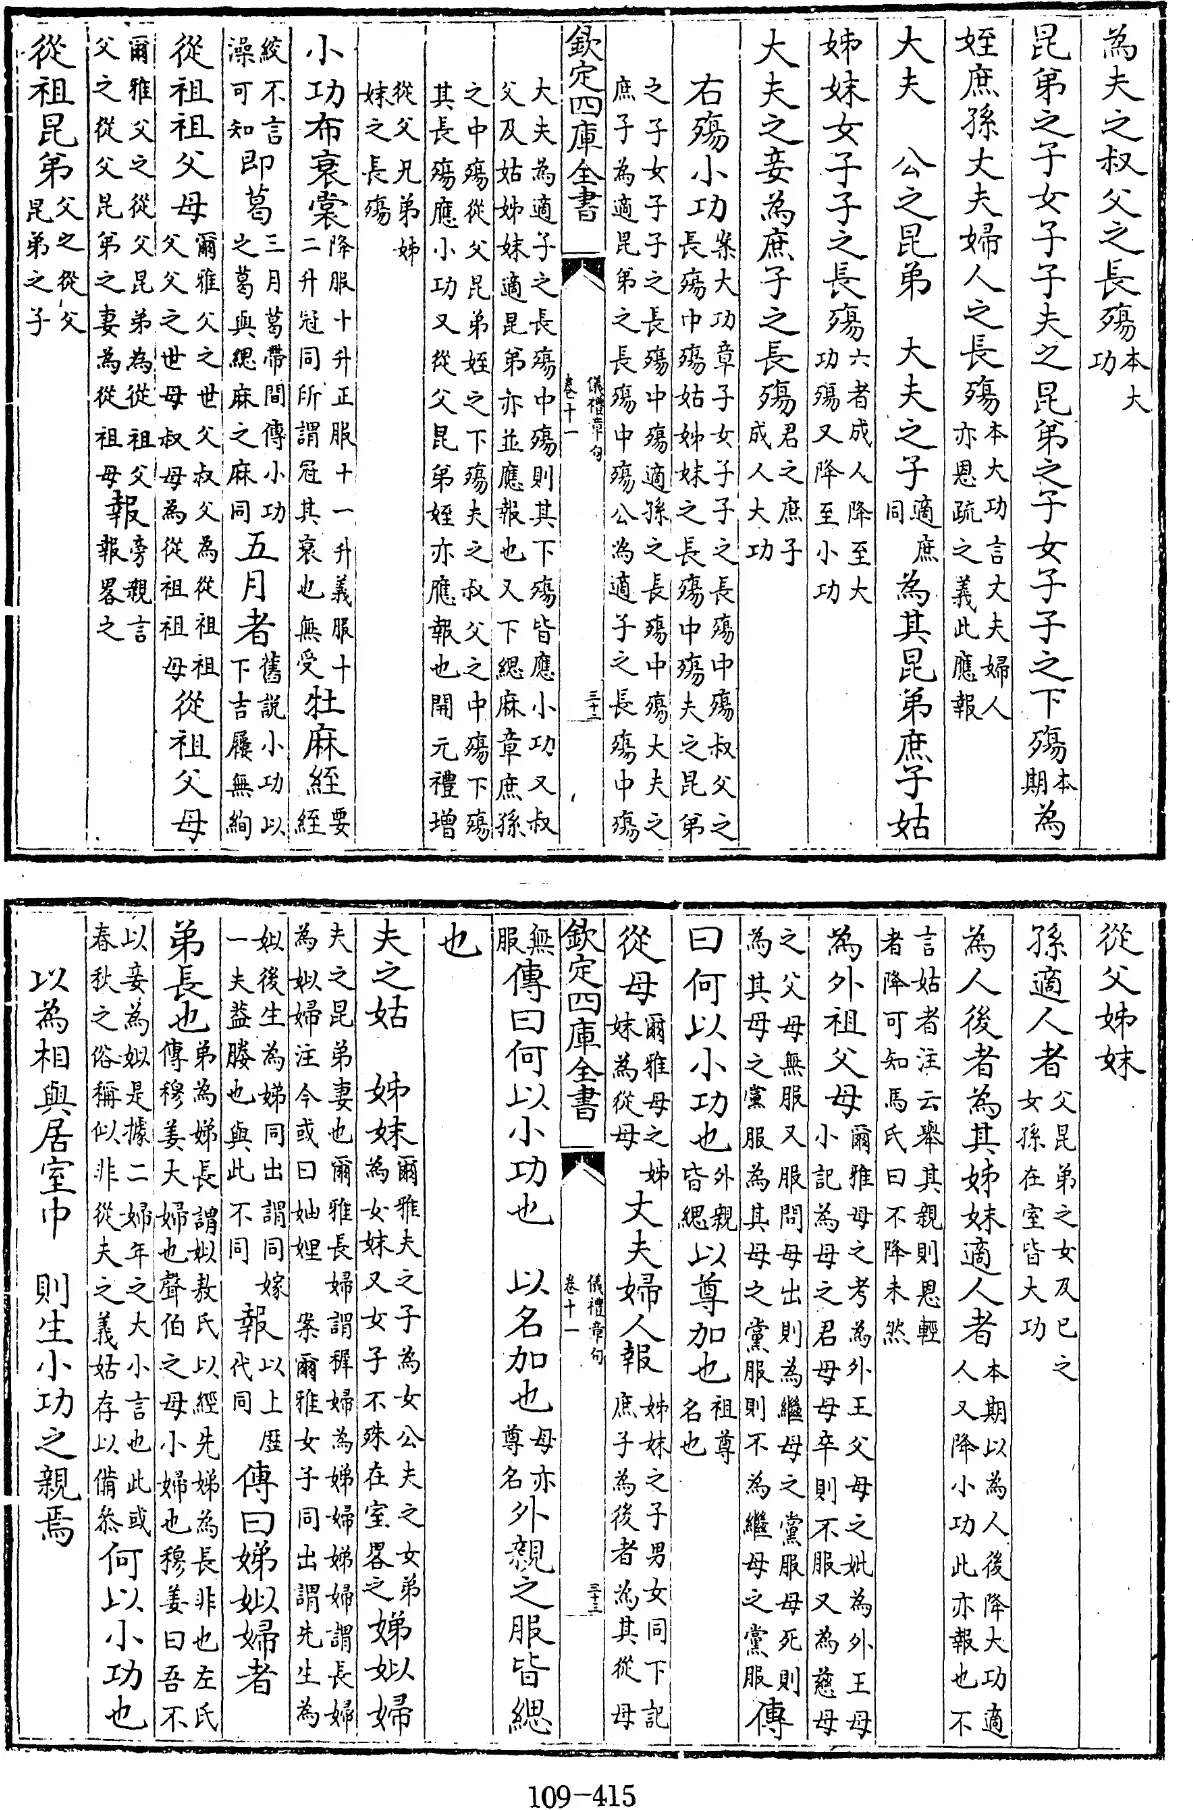 為夫之叔父之長殤本大功
昆弟之子女子子夫之昆弟之子女子子之下殤本期為
姪庶孫丈夫婦人之長殤本大功言丈夫婦人亦恩疏之義此應報
大夫　公之昆弟　大夫之子適庶同為其昆弟庶子姑
姊妹女子子之長殤六者成人降至大功殤又降至小功
大夫之妾為庶子之長殤君之庶子成人大功
右殤小功案大功章子女子子之長殤中殤叔父之長殤中殤姑姊妹之長殤中殤夫之昆弟
之子女子子之長殤中殤適孫之長殤中殤大夫之庶子為適昆弟之長殤中殤公為適子之長殤中殤
欽定四庫全書　儀禮章句卷十一　三十二
大夫為適子之長殤中殤則其下殤皆應小功又叔父及姑姊妹適昆弟亦並應報也又下緦麻章庶孫
之中殤從父昆弟姪之下殤夫之叔父之中殤下殤其長殤應小功又從父昆弟姪亦應報也開元禮增
從父兄弟姊妹之長殤
小功布衰裳降服十升正服十一升義服十二升冠同所謂冠其衰也無受牡麻絰要絰
絞不言澡可知即葛三月葛帶間傳小功之葛與緦麻之麻同五月者舊說小功以下吉屨無絇
從祖祖父母爾雅父之世父叔父為從祖祖父父之世母叔母為從祖祖母從祖父母
爾雅父之從父昆弟為從祖父父之從父昆弟之妻為從祖母報旁親言報畧之
從祖昆弟父之從父昆弟之子
從父姊妹
孫適人者父昆弟之女及已之女孫在室皆大功
為人後者為其姊妹適人者本期以為人後降大功適人又降小功此亦報也不
言姑者注云舉其親則恩輕者降可知馬氏曰不降未然
為外祖父母爾雅母之考為外王父母之妣為外王母小記為母之君母母卒則不服又為慈母
之父母無服又服問母出則為繼母之黨服母死則為其母之黨服為其母之黨服則不為繼母之黨服傳
曰何以小功也外親皆緦以尊加也祖尊名也
從母爾雅母之姊妹為從母丈夫婦人報姊妹之子男女同下記庶子為後者為其從母
欽定四庫全書　儀禮章句卷十一　三十三
無服傳曰何以小功也　以名加也母亦尊名外親之服皆緦
也
夫之姑　姊妹爾雅夫之子為女公夫之女弟為女妹又女子不殊在室畧之娣姒婦
夫之昆弟妻也爾雅長婦謂稺婦為娣婦娣婦謂長婦為姒婦注今或曰妯娌　案爾雅女子同出謂先生為
姒後生為娣同出謂同嫁一夫葢媵也與此不同報以上歴代同傳曰娣姒婦者
弟長也弟為娣長謂姒敖氏以經先娣為長非也左氏傳穆姜大婦也聲伯之母小婦也穆姜曰吾不
以妾為姒是據二婦年之大小言也此或春秋之俗稱似非從夫之義姑存以備叅何以小功也
以為相與居室中　則生小功之親焉
109-415